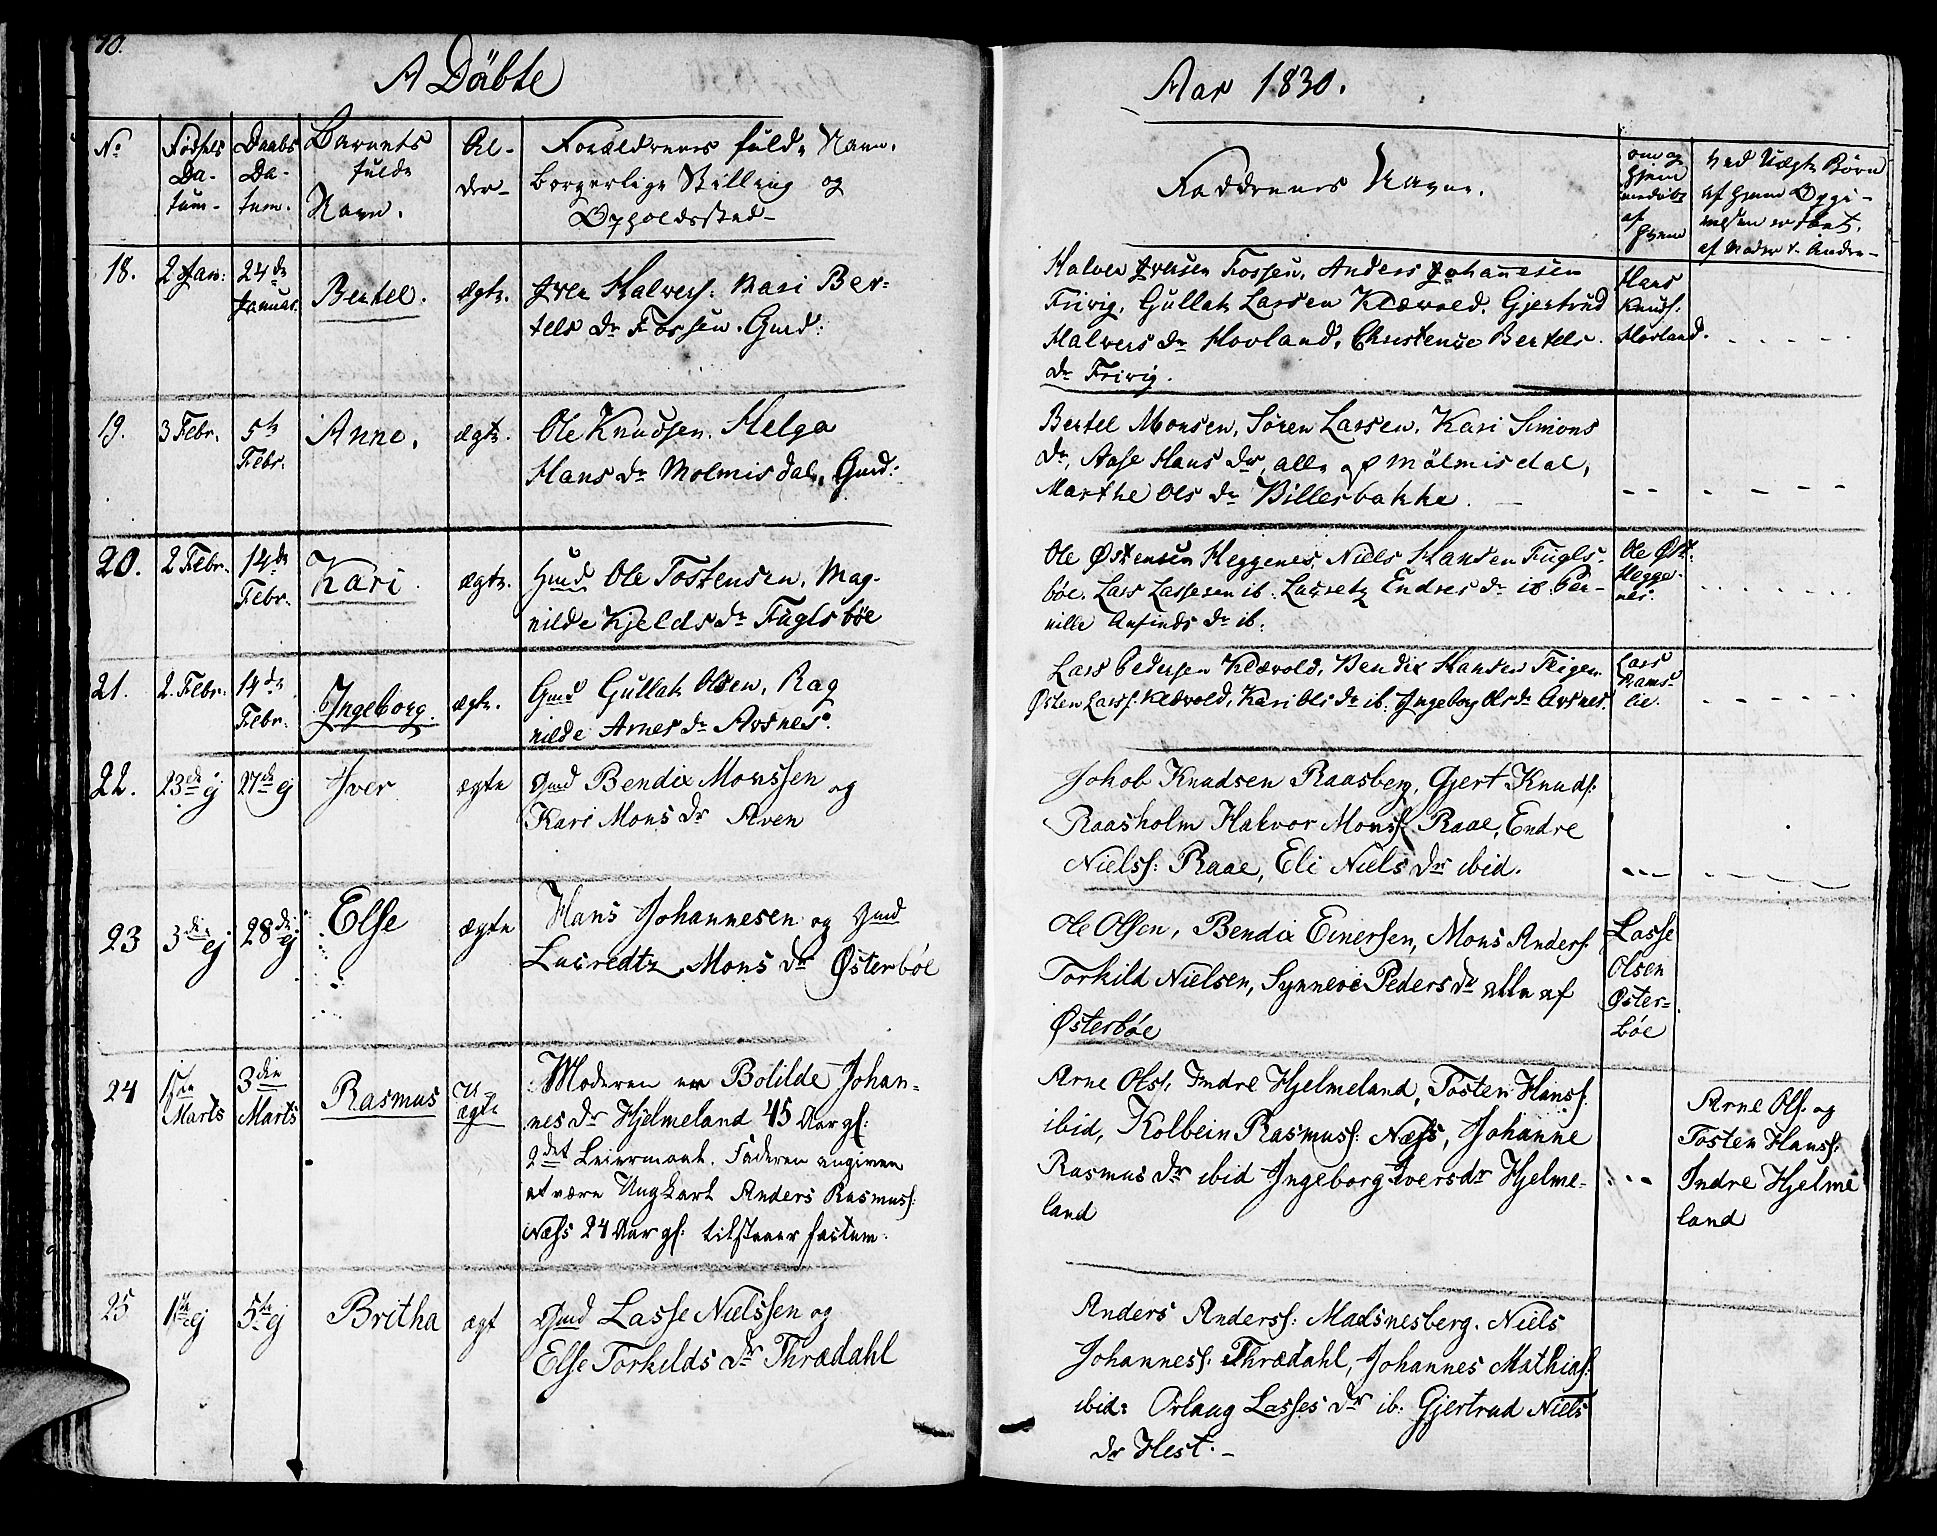 70.
A Döbte
Aar 1830.
No
Fødsels Da- tum-
Daabs Da- tum.
Barnets fulde Navn.
Al- der-
Forældrenes fulde Navn,
borgerlige Stilling og
Opholdssted-
Faddrenes Navne.
om og hjem af hvem
ved Uægte Børn
af hvem Opgi-
velsen er skeet,
af Moder v. Andre-
18.
2 Jan:
24de Januar.
Bertel.
ægte.
Iver Halvers: Kari Ber-
tels dr Fossen. Gmd:
Halvor Iversen Fossen, Anders Johannesen
Frivig, Gullak Larsen Klævold, Gjertrud
Halvers dr Hovland, Christense Bertels
dr Frivig.
Hans
Knuds:
Hovland.
19.
3 Febr.
5te Febr.
Anne.
ægte.
Ole Knudsen. Helga
Hans dr Molmisdal, Gmd:
Bertel Monsen, Søren Larsen, Kari Simons
dr, Aase Hans dr, alle af Mølmisdal,
Marthe Ols dr Billersbakke.
20.
2 Febr.
14de Febr.
Kari.
ægte.
Gmd Ole Tostensen, Mag-
nilde Kjelds dr Fuglsböe
Ole Østensen Heggenes, Niels Hansen Fugls-
böe. Lars Lassesen ib. Lucretz Endres dr ib Per-
nille Anfinds dr ib.
Ole Øst:
Hegge-
nes.
21.
2. Febr.
14de Febr.
Ingeborg.
ægte.
Gmd Gullak Olsen, Rag
nilde Arnes dr Avsnes.
Lars Pedersen Klævold, Bendix Hansen Teigen
Østen Larss: Klævold, Kari Ols dr ib. Ingeborg Ols dr Avsnes.
Lars
Rams-
lie.
22.
23de ej
27de ej
Iver
ægte
Gmd Bendix Monssen og
Kari Mons dr Aven
Johob Knudsen Raasberg, Gjert Knuds:
Raasholm Halvor Monss: Raae, Endre
Nielss: Raae, Eli Niels dr ibid.
23
3die ej
28de ej
Else
ægte
Hans Johannesen og Gmd
Lucredtz Mons dr Østerbøe
Ole Olsen, Bendix Einersen, Mons Anders:
Torkild Nielsen, Synneve Peders dr alle af
Østerbøe
Lasse
Olsen
Øster-
bøe
24
1ste Marts
3die Marts
Rasmus
U-
ægte
: Moderen er Bolilde Johan-
nes dr Hjelmeland 45 Aar gl:
2det Leiermaal. Faderen angiven
at være Ungkarl Anders Rasmuss:
Næss 24 Aar gl: tilstaaer factum.
Arne Olss: Indre Hjelmeland, Tosten Hanss:
ibid, Kolbein Rasmuss: Næss, Johanne
Rasmus dr ibid Ingeborg Ivers dr Hjelme-
land
Arne Ols: og
Tosten Hanss:
Indre Hjelme
land
25
1ste ej
5te ej
Britha
ægt
Gmd Lasse Nielssen og
Else Torkilds dr Thrædahl
Anders Anderss: Madsnesberg. Niels
Johanness: Thrædahl, Johannes Mathias:
ibid: Orlaug Lasses dr ib: Gjertrud Niels
dr Hest.